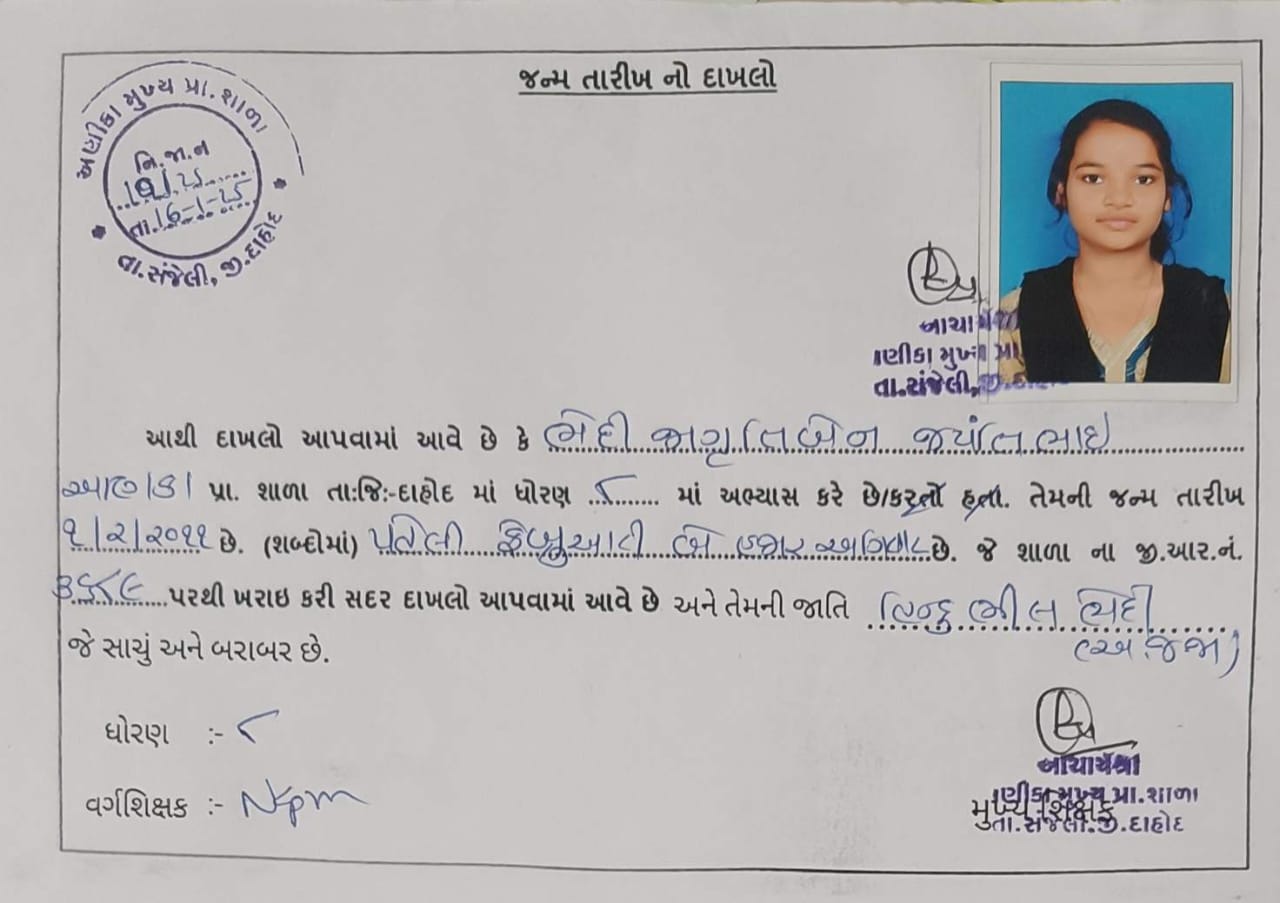 જન્મ તારીખ નો દાખલો
અણીકા મુખ્ય પ્રા. શાળા
નિ.જા.ન
તા.16-1-25
તા.સંજેલી, જી.દાહોદ
આચાર્યશ્રી
ણીકા મુખ્ય પ્રા
તા.સંજેલી, જી.દાહો
આથી દાખલો આપવામાં આવે છે કે ભેદી જાગૃતિબેન જયંતિભાઇ
અણીકા પ્રા. શાળા તા:જિ:-દાહોદ માં ધોરણ ૮ માં અભ્યાસ કરે છે/કરતો હતા. તેમની જન્મ તારીખ
૧/૨/૨૦૧૧ છે. (શબ્દોમાં) પહેલી ફેબ્રુઆરી બે હજાર અગિયાર છે. જે શાળા ના જી.આર.નં.
પરથી ખરાઇ કરી સદર દાખલો આપવામાં આવે છે અને તેમની જાતિ હિન્દુ ભીલ ભેદી
(અ.જજા)
જે સાચું અને બરાબર છે.
ધોરણ :- ૮
વર્ગશિક્ષક :-
આચાર્યશ્રી
ણીકા મુખ્ય પ્રા.શાળા
મુખ્ય શિક્ષક
તા.સંજેલી.જી.દાહોદ